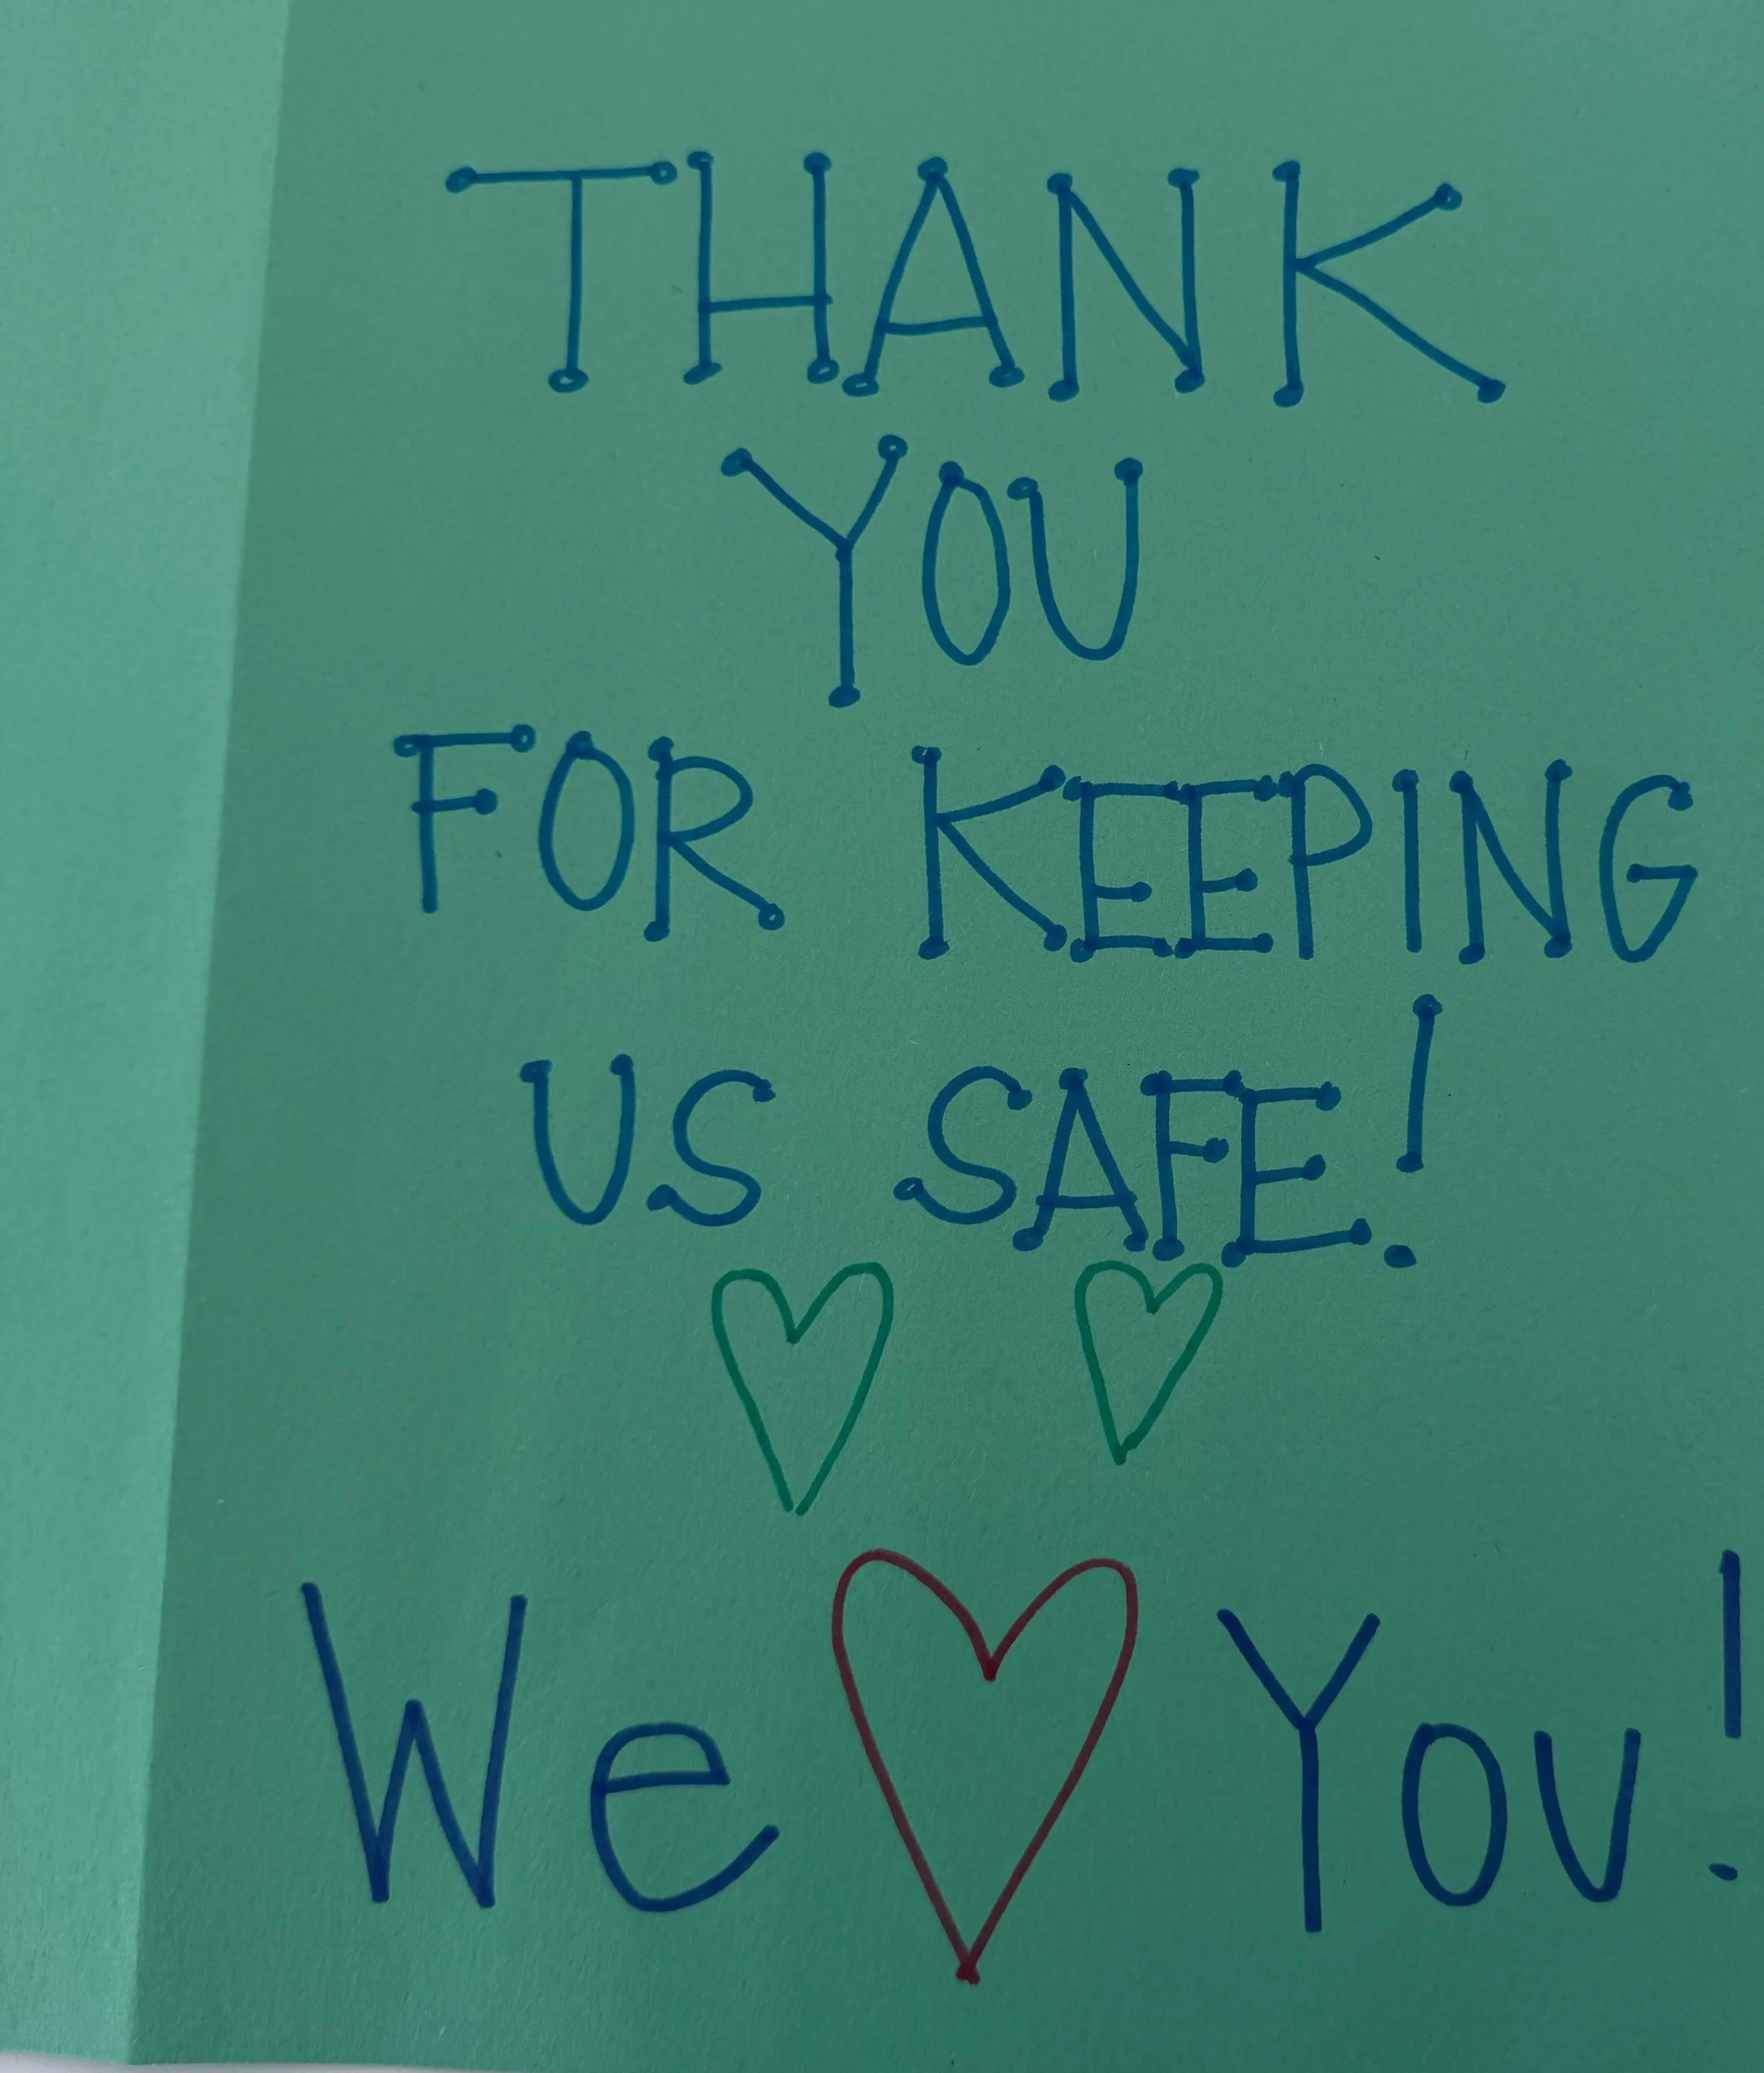 THANK
YOU
FOR KEEPING
US SAFE!
We ♡ You!